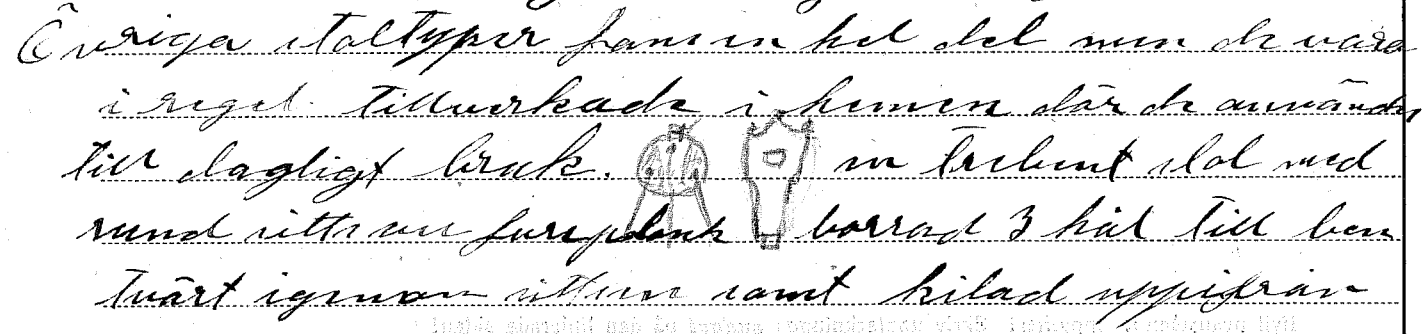 Övriga stoltyper fans en hel del men de vara
i regel tillverkade i hemen där de användes
till dagligt bruk. en trebent stol med
rund sitts av furuplank borrad 3 hål till ben
tvärt igenom sittsen samt kilad uppifrån